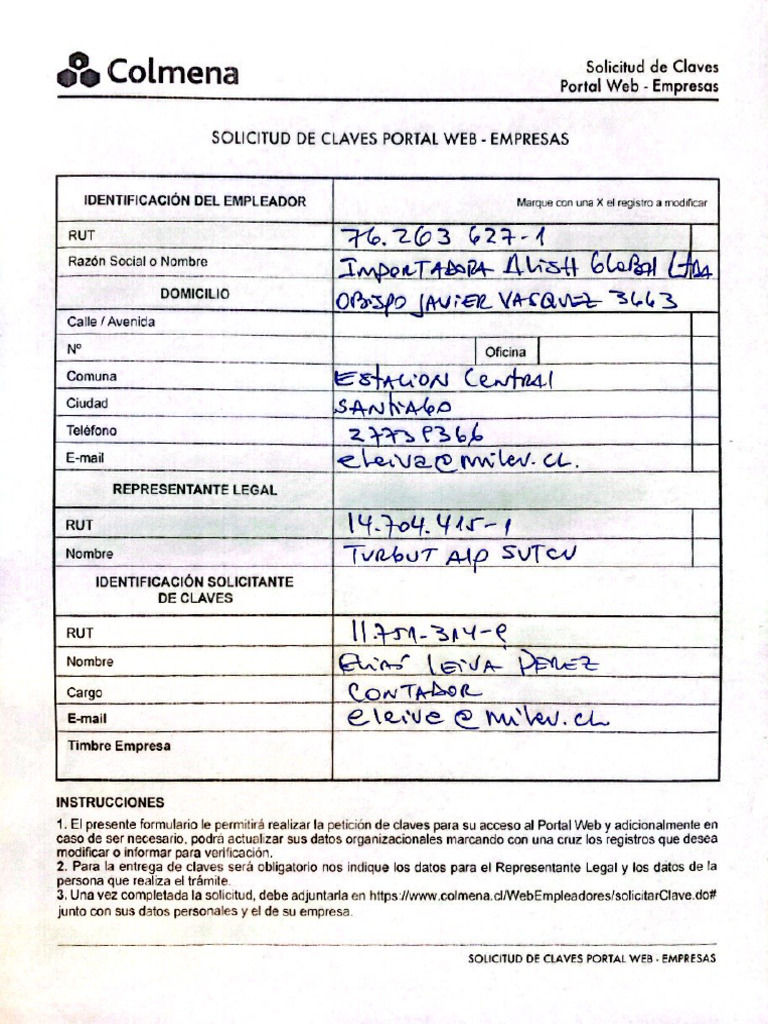 Colmena
Solicitud de Claves
Portal Web - Empresas
SOLICITUD DE CLAVES PORTAL WEB - EMPRESAS
IDENTIFICACIÓN DEL EMPLEADOR Marque con una X el registro a modificar
RUT 76.263 627-1
Razón Social o Nombre IMPORTADORA ALISH GLOBAL LTDA
DOMICILIO OBISPO JAVIER VASQUEZ 3663
Calle / Avenida
Nº Oficina
Comuna ESTACION CENTRAL
Ciudad SANTIAGO
Teléfono 27739366
E-mail eleiva@milev.cl.
REPRESENTANTE LEGAL
RUT 14.704.415-1
Nombre TURGUT Alp SUTCU
IDENTIFICACIÓN SOLICITANTE
DE CLAVES
RUT 11.751-314-
Nombre ELIAS LEIVA PEREZ
Cargo CONTADOR
E-mail eleiva@milev.cl
Timbre Empresa
INSTRUCCIONES
1. El presente formulario le permitirá realizar la petición de claves para su acceso al Portal Web y adicionalmente en
caso de ser necesario, podrá actualizar sus datos organizacionales marcando con una cruz los registros que desea
modificar o informar para verificación.
2. Para la entrega de claves será obligatorio nos indique los datos para el Representante Legal y los datos de la
persona que realiza el trámite.
3. Una vez completada la solicitud, debe adjuntarla en https://www.colmena.cl/WebEmpleadores/solicitarClave.do#
junto con sus datos personales y el de su empresa.
SOLICITUD DE CLAVES PORTAL WEB - EMPRESAS